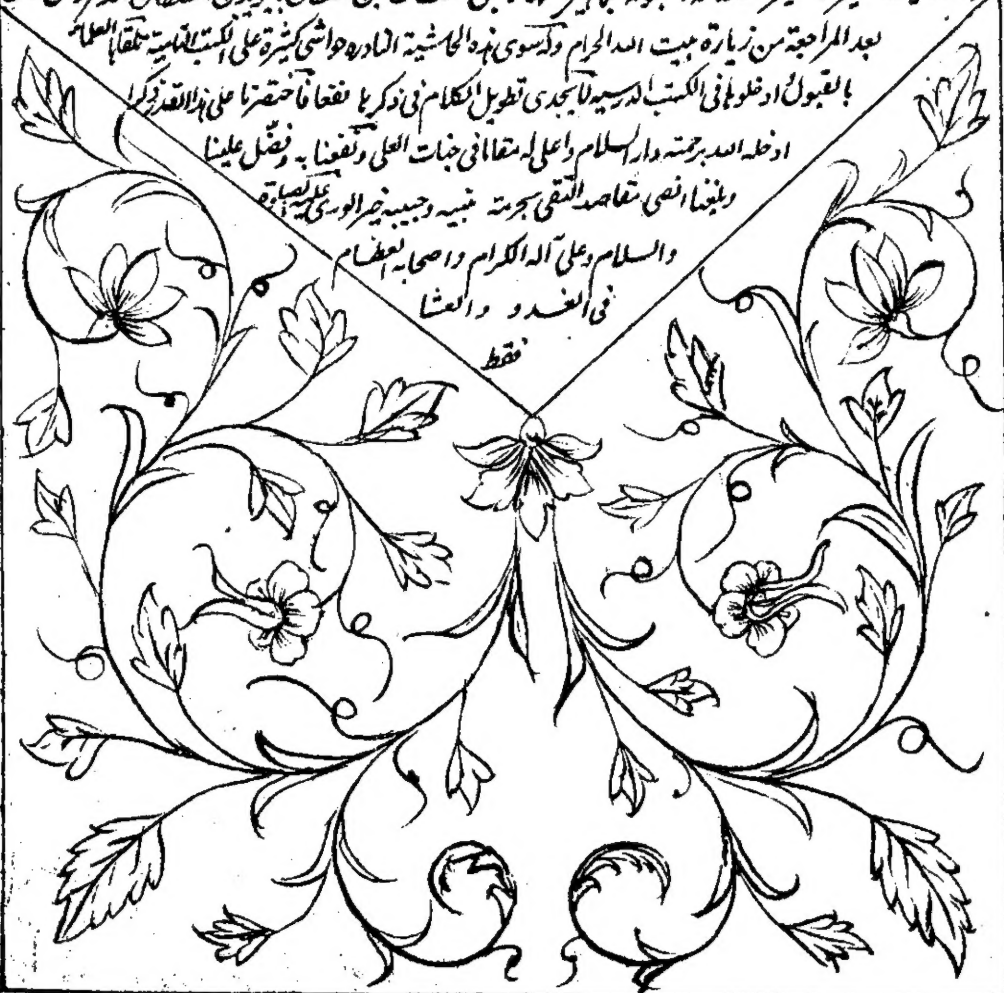 بعد المراجعة من زيارة بيت الله الحرام وله سوى هذه الحاشية النادرة حواشي كثيرة على الكتب النامية تلقاها العلماء
بالقبول ادخلوها في الكتب الدرسية لا يجدي تطويل الكلام في ذكرها نفعا فاختصرنا على هذا القدر ذكرا
ادخله الله برحمته دار السلام واعلى له مقاما في جنات العلى ونفعنا به وفضل علينا
وبلغنا اقصى مقاصد التقى بحرمة نبيه وحبيبه خير الورى عليه الصلوة
والسلام وعلى آله الكرام واصحابه العظام
في الغدو والعشا
فقط